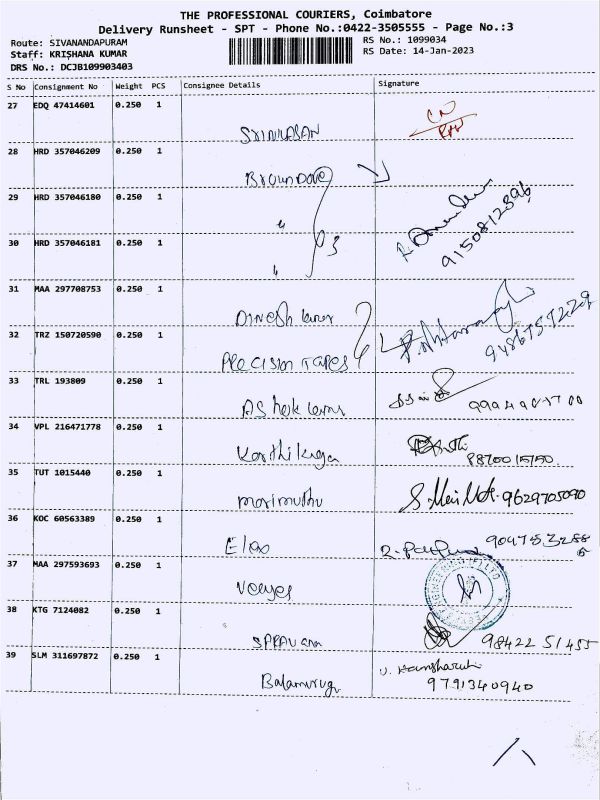 THE PROFESSIONAL COURIERS, Coimbatore
Delivery Runsheet - SPT - Phone No.:0422-3505555 - Page No.:3
Route: SIVANANDAPURAM
RS No.: 1099034
Staff: KRISHANA KUMAR
RS Date: 14-Jan-2023
DRS No.: DCJB109903403
S No Consignment No Weight PCS Consignee Details Signature
27 EDQ 47414601 0.250 1
SRINIVASAN
28 HRD 357046209 0.250 1
Browndove
29 HRD 357046180 0.250 1
"
9150812896
30 HRD 357046181 0.250 1
" 3
31 MAA 297708753 0.250 1
Dinesh kumar
32 TRZ 150720590 0.250 1
PRECISION TAPES
33 TRL 193809 0.250 1
AShok kumar
34 VPL 216471778 0.250 1
Karthikeya
35 TUT 1015440 0.250 1
marimuthu 9629705090
36 KOC 60563389 0.250 1
37 MAA 297593693 0.250 1
38 KTG 7124082 0.250 1
98422 51455
39 SLM 311697872 0.250 1
Balamurug
9791340940